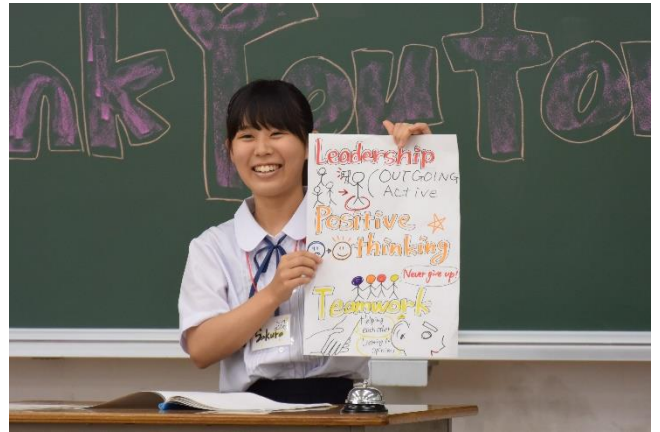 nk You to
Leadership
OUTGOING
Active
Positive
thinking
Never give up!
Teamwork
Helping
each other
Sakura